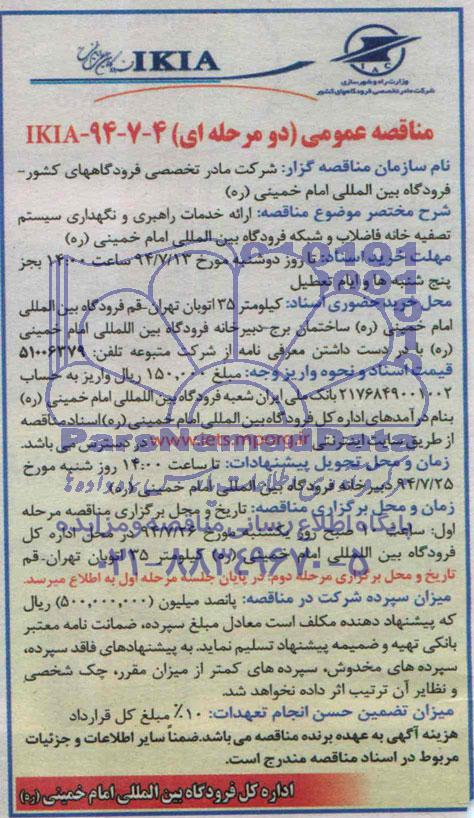 IKIA
IAC
وزارت راه و شهرسازی
شرکت مادر تخصصی فرودگاههای کشور
مناقصه عمومی (دو مرحله ای) ۴-۷-۹۴-IKIA
نام سازمان مناقصه گزار: شرکت مادر تخصصی فرودگاههای کشور-
فرودگاه بین المللی امام خمینی (ره)
شرح مختصر موضوع مناقصه: ارائه خدمات راهبری و نگهداری سیستم
تصفیه خانه فاضلاب و شبکه فرودگاه بین المللی امام خمینی (ره)
مهلت خرید اسناد: تا روز دوشنبه مورخ ۹۴/۷/۱۳ ساعت ۱۴:۰۰ بجز
پنج شنبه ها و ایام تعطیل
محل خرید حضوری اسناد: کیلومتر ۳۵ اتوبان تهران-قم فرودگاه بین المللی
امام خمینی (ره) ساختمان برج-دبیرخانه فرودگاه بین اللمللی امام خمینی
(ره) با در دست داشتن معرفی نامه از شرکت متبوعه تلفن: ۵۱۰۰۶۳۷۹
قیمت اسناد و نحوه واریز وجه: مبلغ ۱۵۰,۰۰۰ ریال واریز به حساب
۲۱۷۶۸۴۹۰۰۱۰۰۲ بانک ملی ایران شعبه فرودگاه بین اللمللی امام خمینی (ره)
بنام درآمدهای اداره کل فرودگاه بین المللی امام خمینی (ره) اسناد مناقصه
از طریق سایت اینترنتی www.iets.mporg.ir در دسترس می باشد.
زمان و محل تحویل پیشنهادات: تا ساعت ۱۴:۰۰ روز شنبه مورخ
۹۴/۷/۲۵ دبیرخانه فرودگاه بین المللی امام خمینی (ره)
زمان و محل برگزاری مناقصه: تاریخ و محل برگزاری مناقصه مرحله
اول: ساعت ۱۰ صبح روز یکشنبه مورخ ۹۴/۷/۲۶ در محل اداره کل
فرودگاه بین المللی امام خمینی (ره) کیلومتر ۳۵ اتوبان تهران-قم
تاریخ و محل برگزاری مرحله دوم: در پایان جلسه مرحله اول به اطلاع میرسد.
میزان سپرده شرکت در مناقصه: پانصد میلیون (۵۰۰,۰۰۰,۰۰۰) ریال
که پیشنهاد دهنده مکلف است معادل مبلغ سپرده، ضمانت نامه معتبر
بانکی تهیه و ضمیمه پیشنهاد تسلیم نماید. به پیشنهادهای فاقد سپرده،
سپرده های مخدوش، سپرده های کمتر از میزان مقرر، چک شخصی
و نظایر آن ترتیب اثر داده نخواهد شد.
میزان تضمین حسن انجام تعهدات: ۱۰٪ مبلغ کل قرارداد
هزینه آگهی به عهده برنده مناقصه می باشد. ضمنا سایر اطلاعات و جزئیات
مربوط در اسناد مناقصه مندرج است.
اداره کل فرودگاه بین المللی امام خمینی (ره)
ParsNamadData
پایگاه اطلاع رسانی مناقصه و مزایده
۰۲۱-۸۸۳۴۹۶۷۰-۵